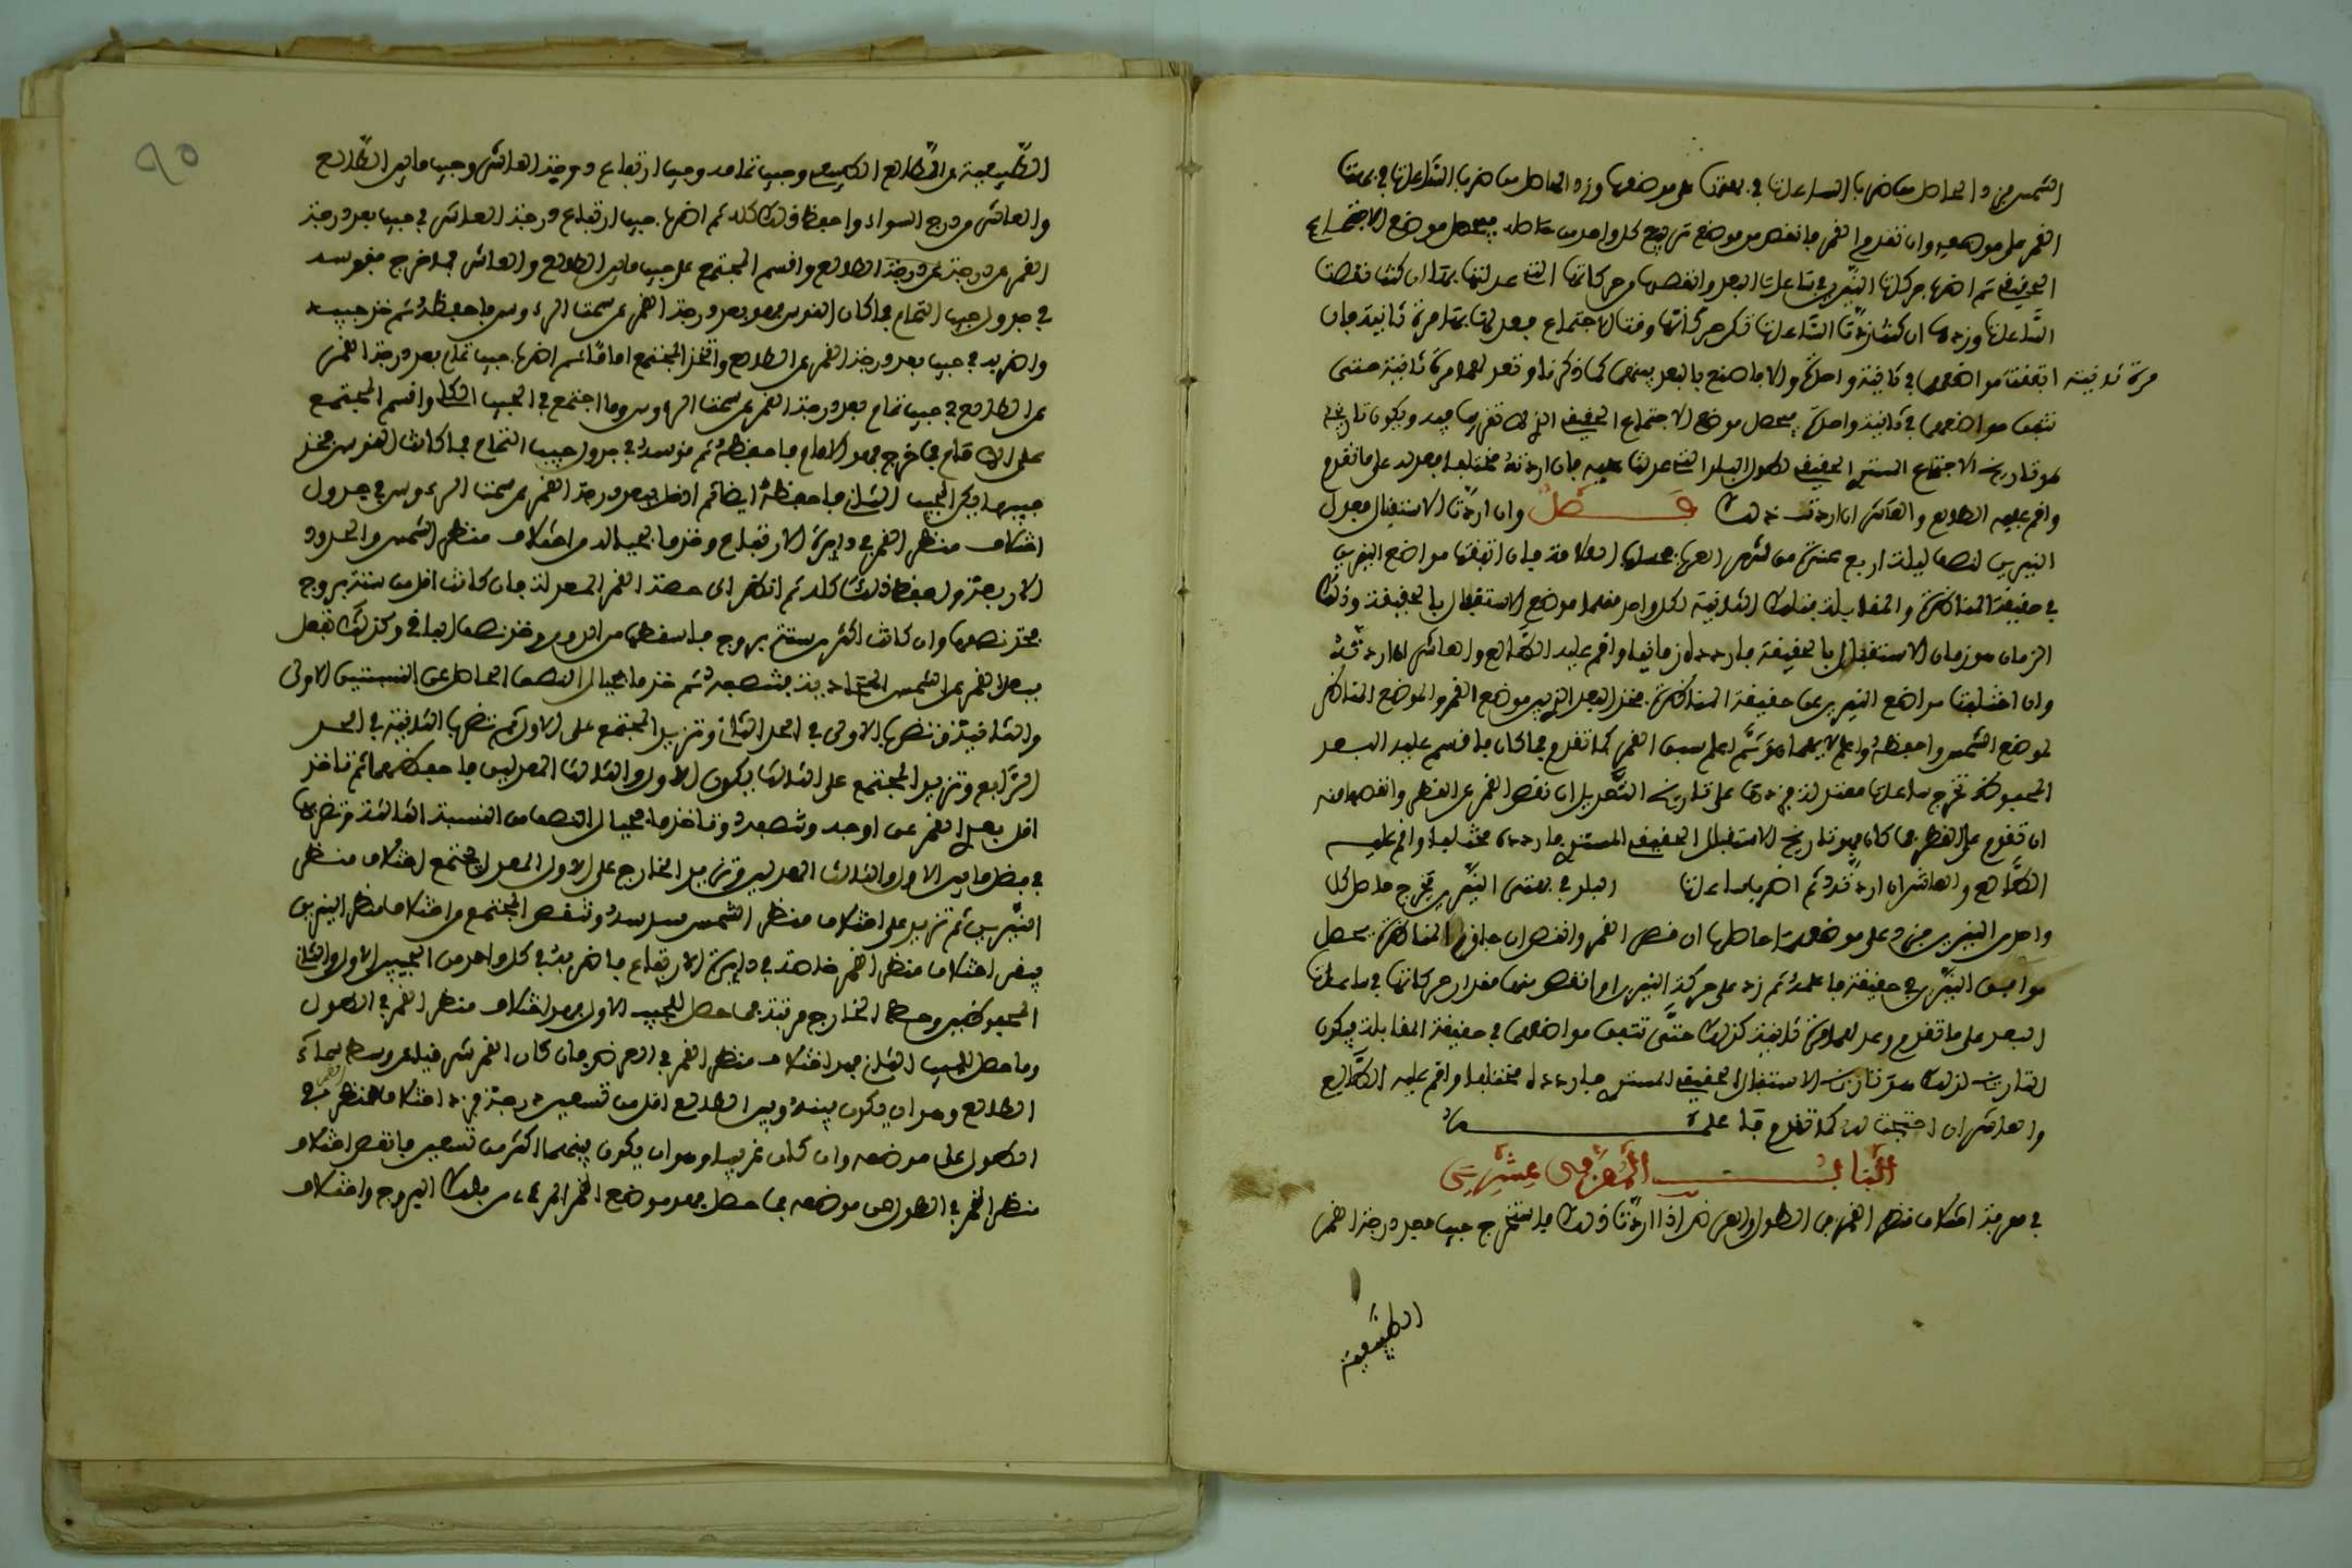 الشمس فزد الحاصل من ضرب الساعات في بهتها على موضعها وزد الحاصل من ضرب الساعات في بهت
القمر على موضعه وان تقدم القمر فانقص من موضع كل واحد منهما حاصله يحصل موضع الاجتماع
الحقيقي ثم اضرب حركات النيرين في ساعات البعد وانقصها من حركاتها التي عدلتها بها ان كنت نقصت
الساعات وزدها ان كنت زدت الساعات فكر حركاتها وقت الاجتماع فعدلها بها مرة ثانية فان
مرة ثانية اتفقت مواضعهما في ثانية واحدة والا فاصنع بالبعد بينهما كما ذكرنا وتعدلهما مرة ثانية حتى
تتفق مواضعهما في ثانية واحدة يحصل موضع الاجتماع الحقيقي الذي لا تقريب فيه ويكون تاريخه
هو تاريخ الاجتماع المستوي الحقيقي لطول البلد الذي عدلت عليه فان اردته مختلفا فعدله على ما تقدم
واقم عليه الطالع والعاشر ان اردت ذلك فصل وان اردت الاستقبال فعدل
النيرين لنصف ليلة اربع عشرة من الشهر العربي بحساب العلامة فان اتفقت مواضع النيرين
في حقيقة المناظرة والمقابلة فتلك الثانية لكل واحد منهما موضع الاستقبال بالحقيقة وذلك
الزمان هو زمان الاستقبال بالحقيقة فاردده زمانيا واقم عليه الطالع والعاشر ان اردته
وان اختلفت مواضع النيرين عن حقيقة المناظرة فخذ البعد الذي بين موضع القمر والموضع المناظر
لموضع الشمس واحفظه واعلم لايهما هو ثم اعلم سبق القمر كما تقدم فما كان فاقسم عليه البعد
المحفوظ تخرج ساعات معتدلة فزدها على تاريخ التعديل ان نقص القمر عن النظير وانقصها منه
ان تقدم على النظير فما كان فهو تاريخ الاستقبال الحقيقي المستوي فاردده مختلفا واقم عليه
الطالع والعاشر ان اردته ثم اضرب ساعات البعد في بهتي النيرين يخرج حاصل كل
واحد من النيرين فزد على موضعه حاصلها ان نقص القمر وانقص ان جاوز المناظرة يحصل
مواضع النيرين في حقيقة ما علمته ثم زد على حركة النيرين او انقص منها مقدار حركاتها في ساعات
البعد على ما تقدم وعدلهما مرة ثانية كذلك حتى تتفق مواضعهما في حقيقة المقابلة فيكون
التاريخ لذلك هو تاريخ الاستقبال الحقيقي المستوي فاردده مختلفا واقم عليه الطالع
والعاشر ان احتجت اليه كما تقدم فاعلمه
الباب الخامس والعشرون
في معرفة اختلاف منظر القمر في الطول والعرض اذا اردت ذلك فاستخرج جيب بعد درجة القمر
الطبيعية
٩٥
الطبيعية عن الطالع وجيب تمامه وجيب ارتفاع درجة العاشر وجيب ما بين الطالع
والعاشر من درج السواء واحفظ ذلك كله ثم اضرب جيب ارتفاع درجة العاشر في جيب بعد درجة
القمر عن درجة الطالع واقسم المجتمع على جيب ما بين الطالع والعاشر فما خرج فقوسه
في جدول جيب التمام فما كان القوس فهو بعد درجة القمر عن سمت الرءوس فاحفظه ثم خذ جيبه
واضربه في جيب بعد درجة القمر عن الطالع واتخذ المجتمع اماما ثم اضرب جيب تمام بعد درجة القمر
عن الطالع في جيب تمام بعد درجة القمر عن سمت الرءوس وما اجتمع في الجيب الكلي واقسم المجتمع
على الامام فما خرج فهو الاول فاحفظه ثم قوسه في جدول جيب التمام فما كانت القوس فخذ
جيبها فيكون الجيب الثاني فاحفظه ايضا ثم ادخل ببعد درجة القمر عن سمت الرءوس في جدول
اختلاف منظر القمر في دائرة الارتفاع وخذ ما بحياله من اختلاف منظر الشمس والحدود
الاربعة واحفظ ذلك كله ثم انظر الى حصة القمر المعدلة فان كانت اقل من ستة بروج
فخذ نصفها وان كانت اكثر من ستة بروج فاسقطها من الدور وخذ نصف الباقي وكذلك تفعل
ببعد القمر عن الشمس فتنصفه ثم خذ ما بحيال النصف الحاصل من النسبتين الاولى
والثانية فتضرب الاولى في الحد الثاني وتزيد المجتمع على الاول ثم تضرب الثانية في الحد
الرابع وتزيد المجتمع على الثالث فيكون الاول والثالث المعدلين فاحفظهما ثم تاخذ
اقل بعد القمر عن اوجه وتنصفه وتاخذ ما بحيال النصف من النسبة الثالثة وتضربها
في فضل ما بين الاول والثالث المعدلين وتزيد الخارج على الاول المعدل فيجتمع اختلاف منظر
النيرين ثم تزيد على اختلاف منظر الشمس سدسه وتنقص المجتمع من اختلاف منظر النيرين
فيبقى اختلاف منظر القمر خاصة في دائرة الارتفاع فاضربه في كل واحد من الجيبين الاول والثاني
المحفوظين وحط الخارج مرتبة فما حصل للجيب الاول فهو اختلاف منظر القمر في الطول
وما حصل للجيب الثاني فهو اختلاف منظر القمر في العرض فان كان القمر شرقيا عن وسط سماء
الطالع وهو ان يكون بينه وبين الطالع اقل من تسعين درجة فزد اختلاف منظره في
الطول على موضعه وان كان غربيا وهو ان يكون بينهما اكثر من تسعين فانقص اختلاف
منظر القمر في الطول من موضعه فما حصل فهو موضع القمر المرءي من فلك البروج واختلاف